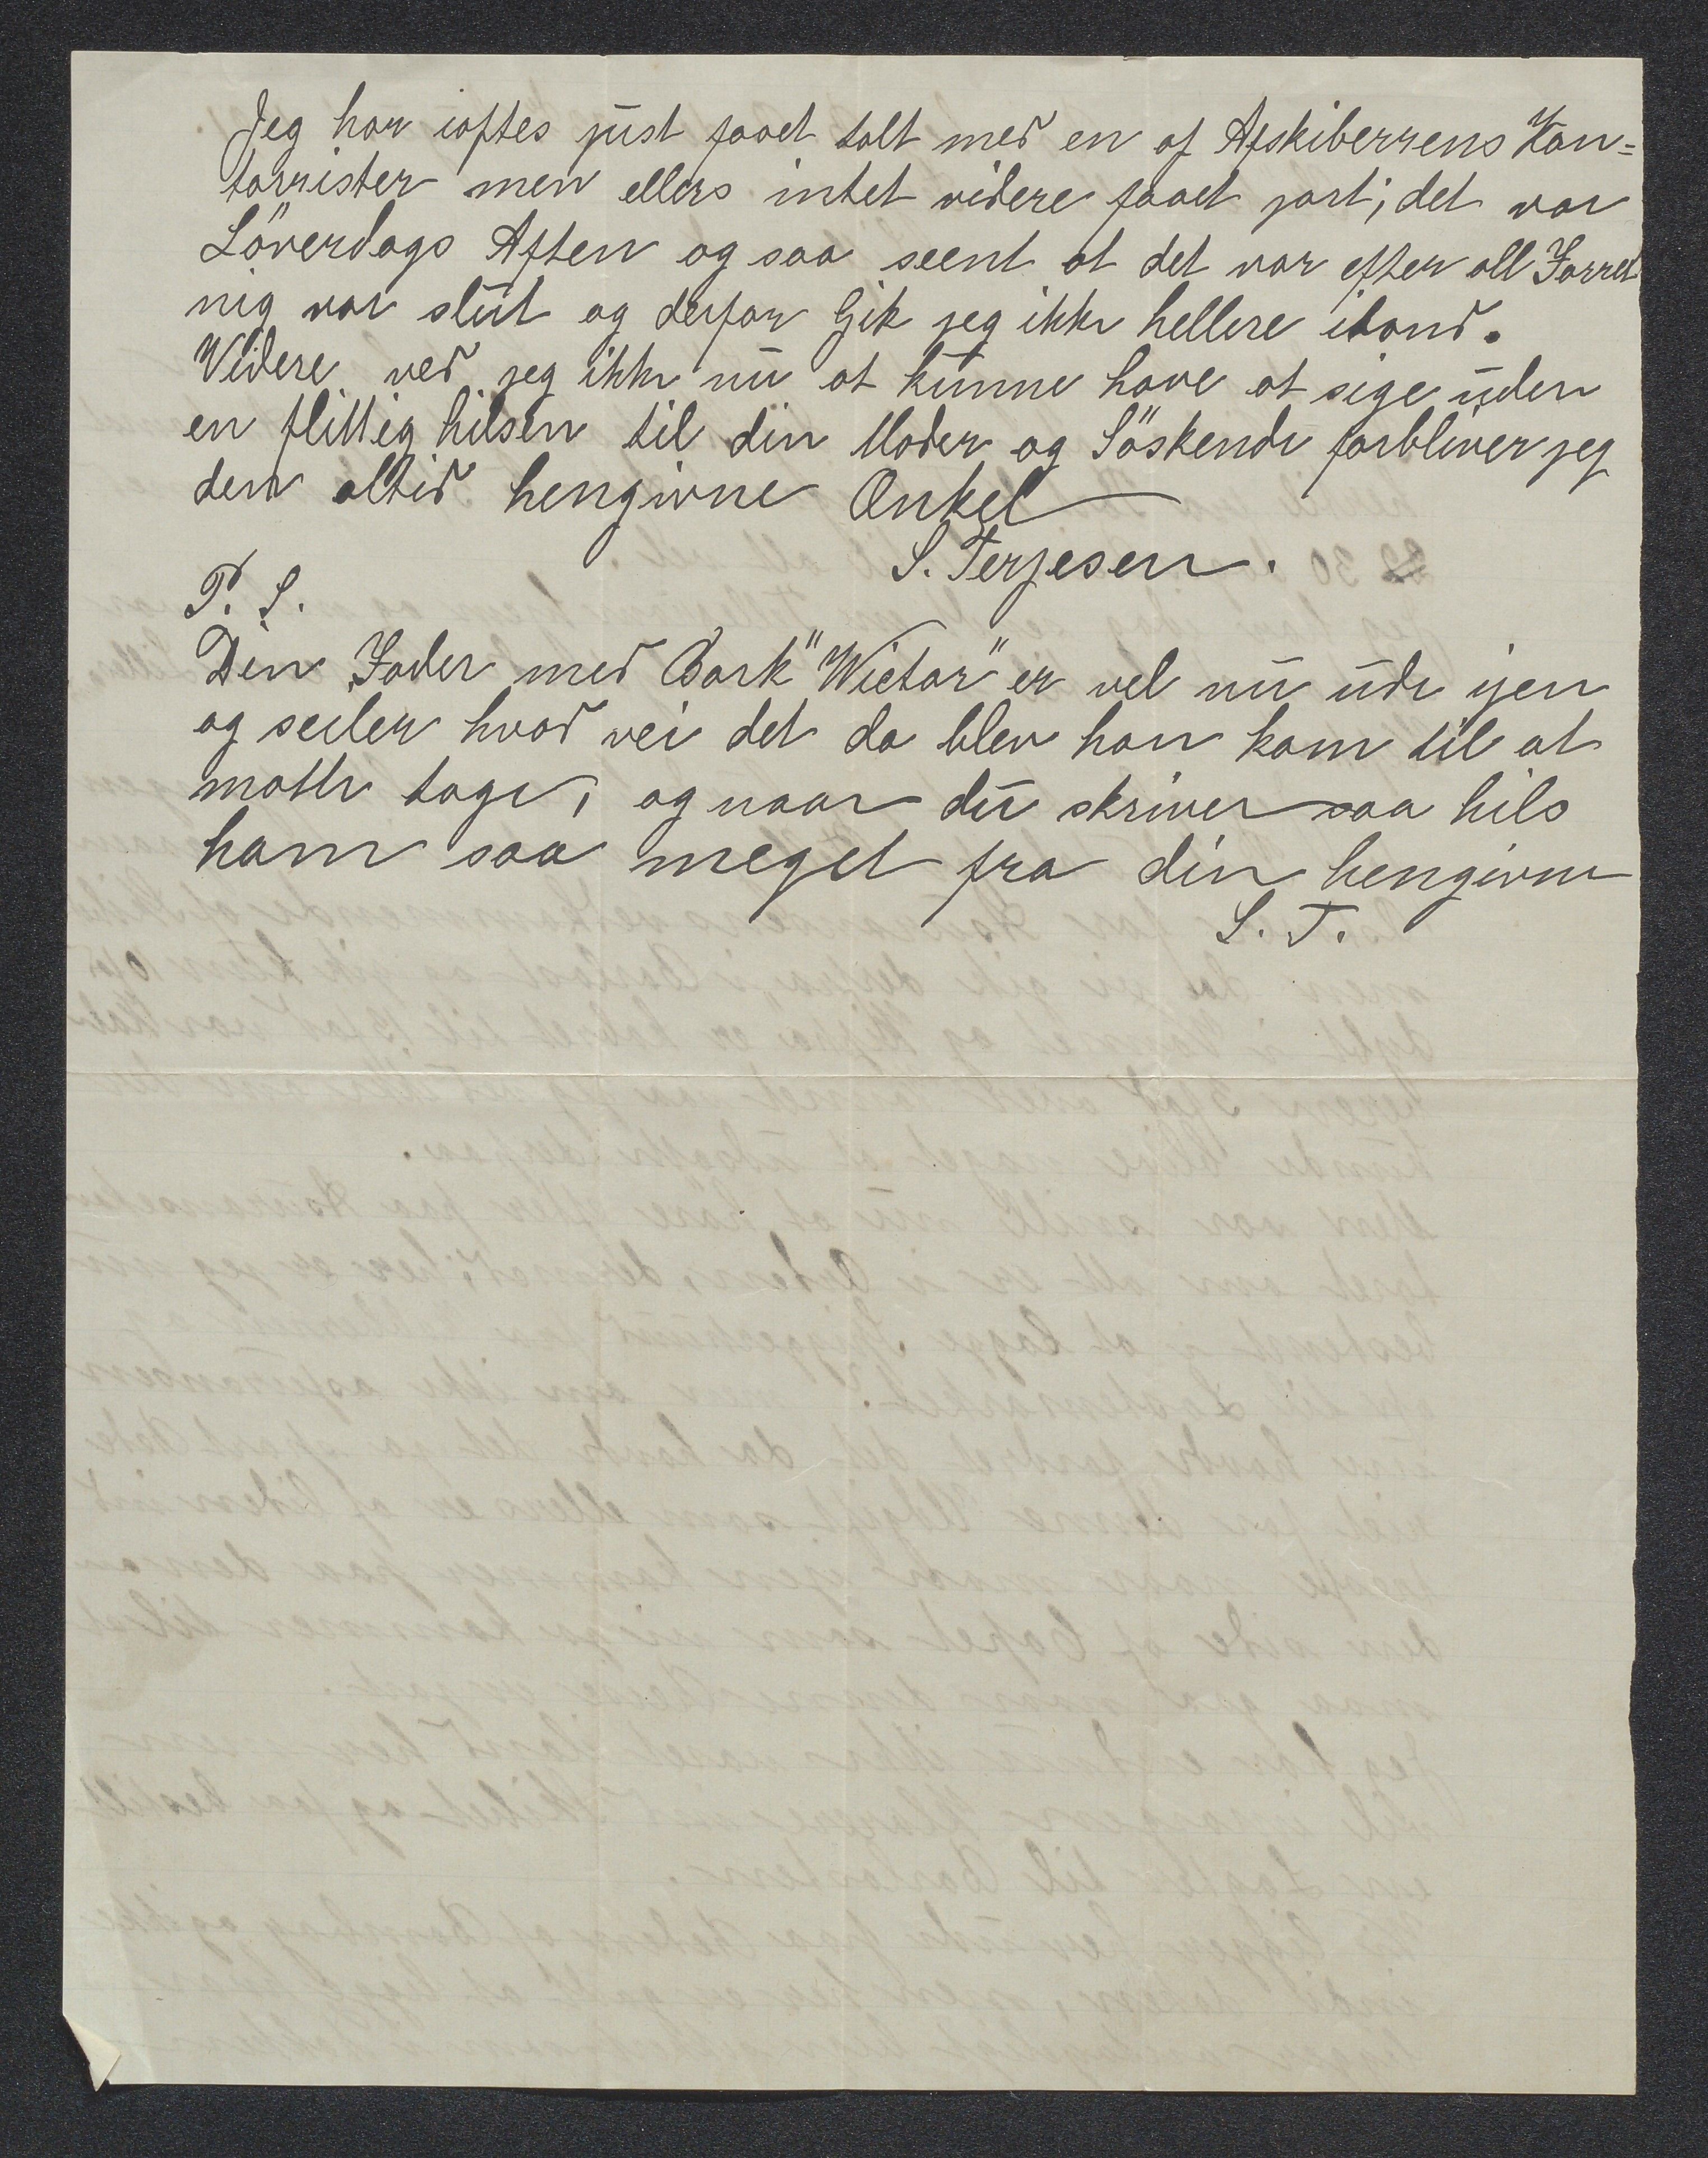 Jeg har iaftes just faaet talt med en af Afskiberrens Kon=
torrister men ellers intet videre faaet jort; det var
Löverdags Aften og saa seent at det var efter all Forret
nig var slut og derfor Gik jeg ikke hellere iland.
Videre ved jeg ikke nu at kunne have at sige uden
en flittig hilsen til din Moder og Söskende forbliver jeg
den altid hengivne Onkel
S. Terjesen.
P. S.
Din Fader med Bark "Wictor" er vel nu ude ijen
og seiler hvad vei det da blev han kom til at
motte tage, og naar du skriver saa hils
ham saa meget fra din hengivne
S. T.